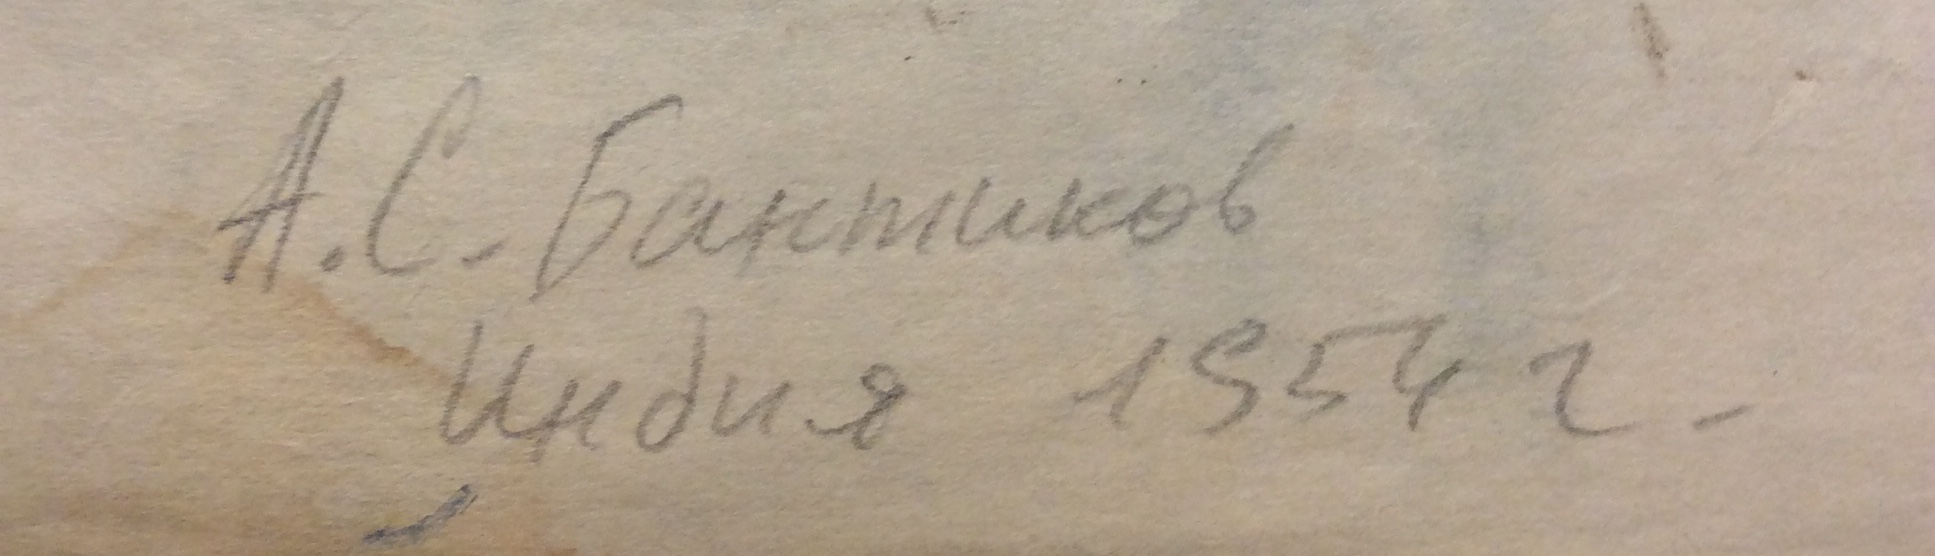 А.С. Бантиков
Индия 1954 г.